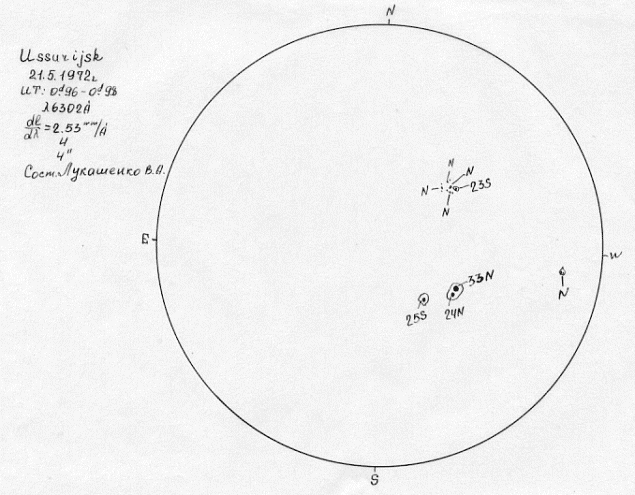 Ussurijsk
21.5.1972г
UT: 0ᵈ.96-0ᵈ.98
λ6302Å
dl/dλ = 2.53 mm/Å
4
4"
Сост. Лукашенко В.А.
N
N
N
N
23S
N
E
W
33N
N
25S
24N
S